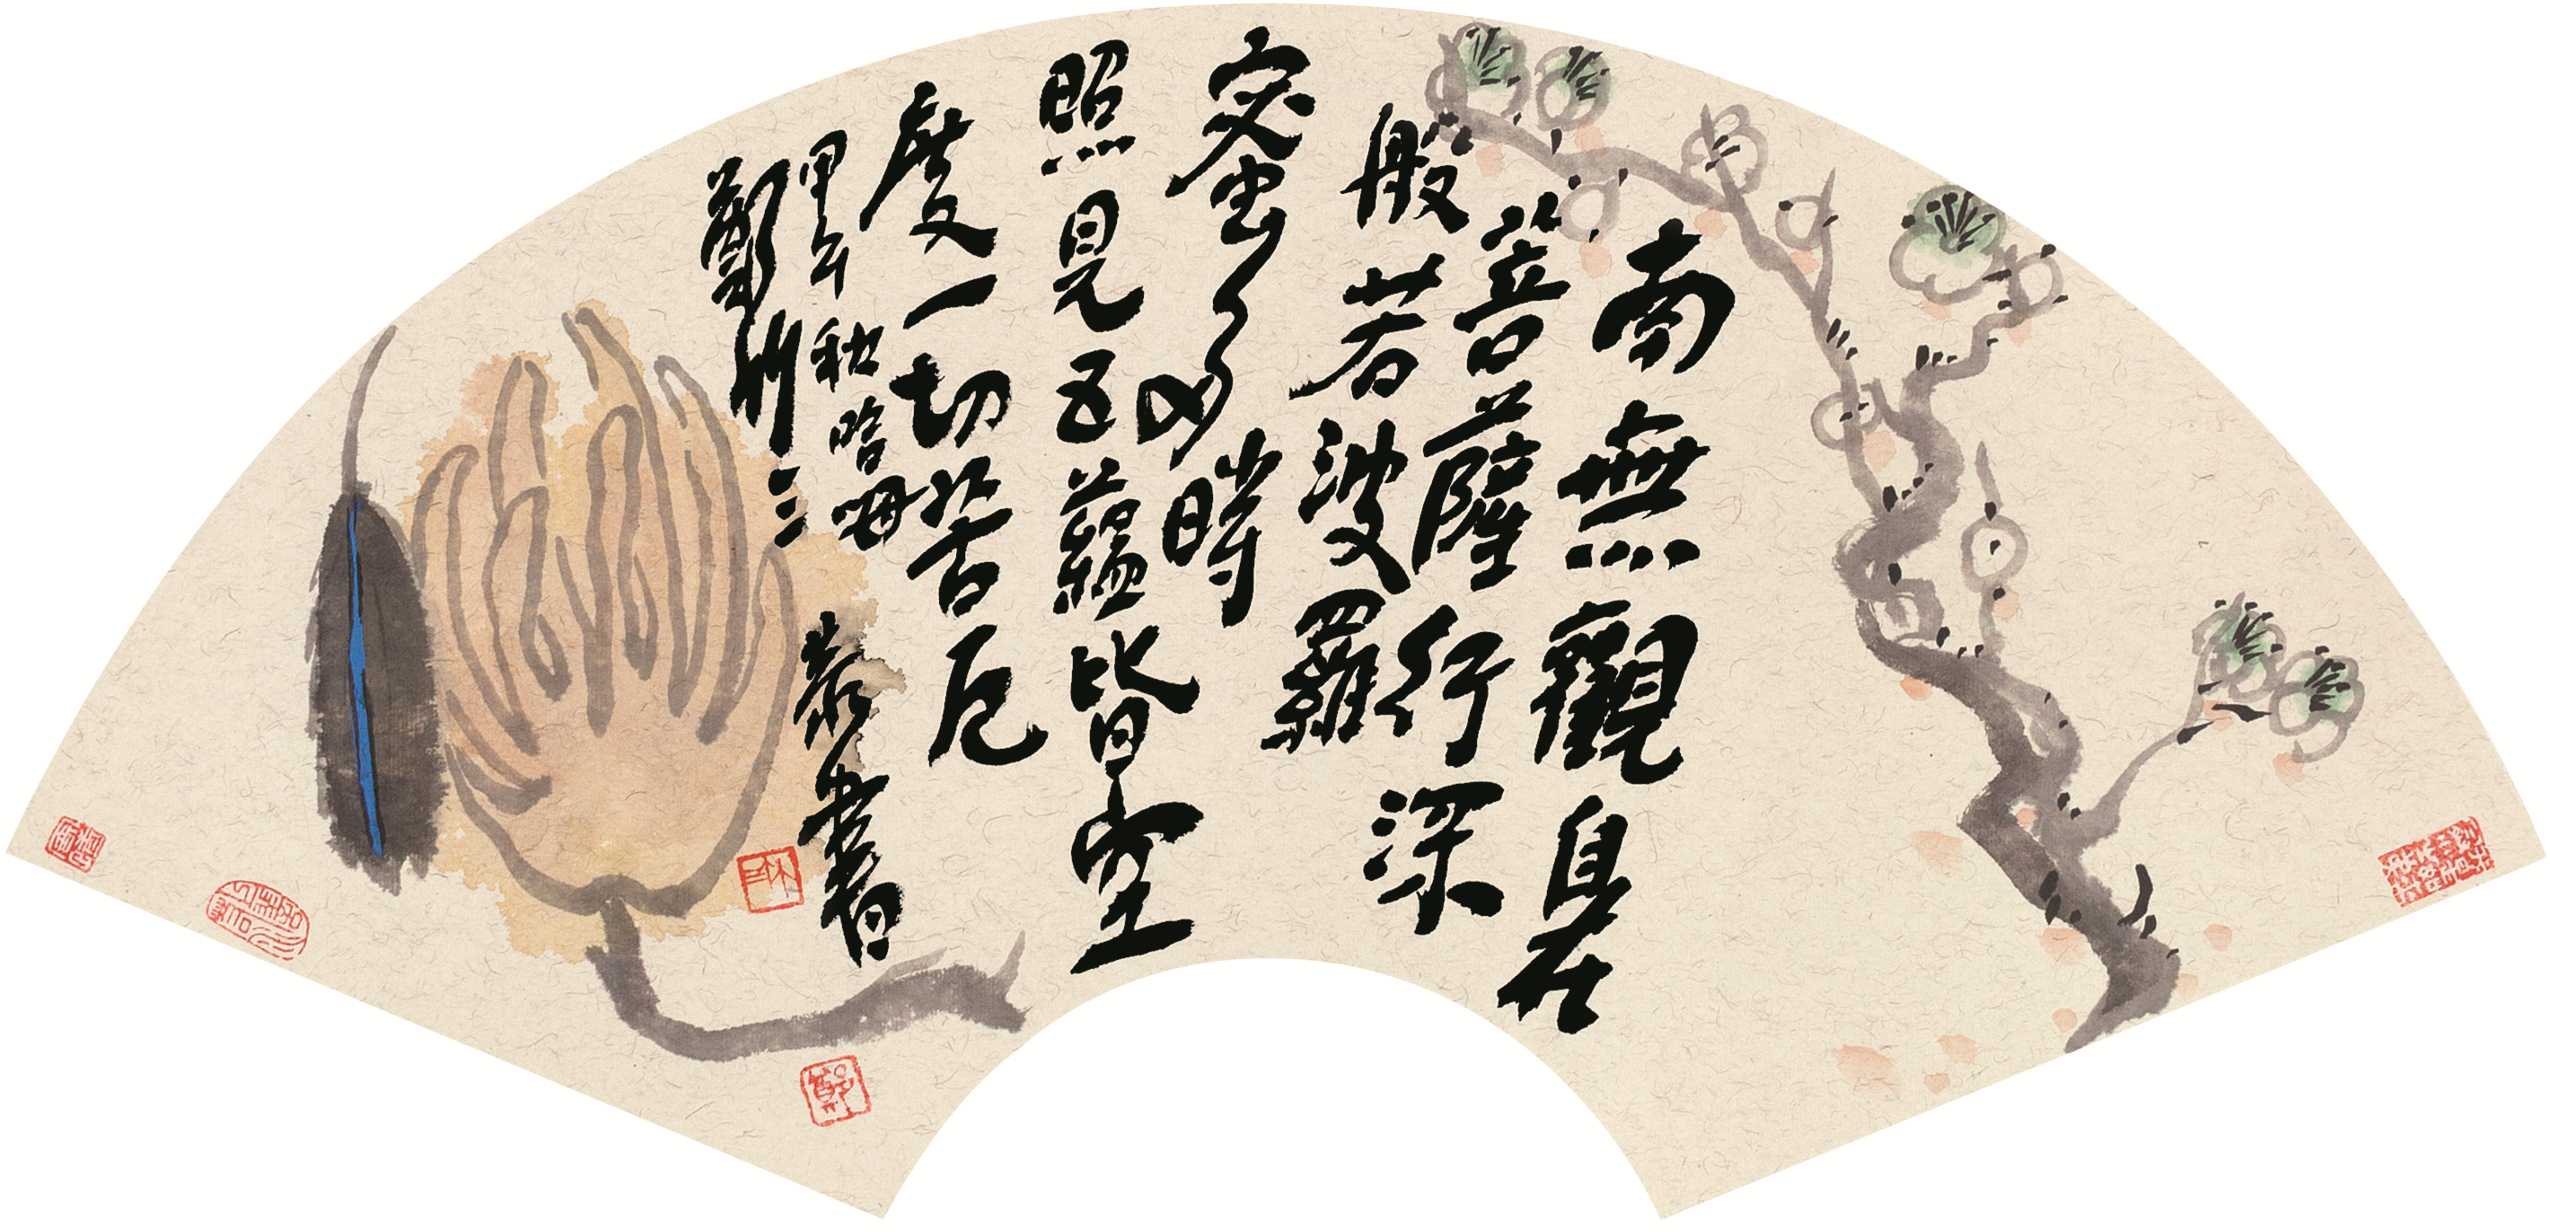 南無觀自在
菩薩行深
般若波羅
蜜多時
照見五蘊皆空
度一切苦厄
甲午秋
鄭州三
恭書
鄭